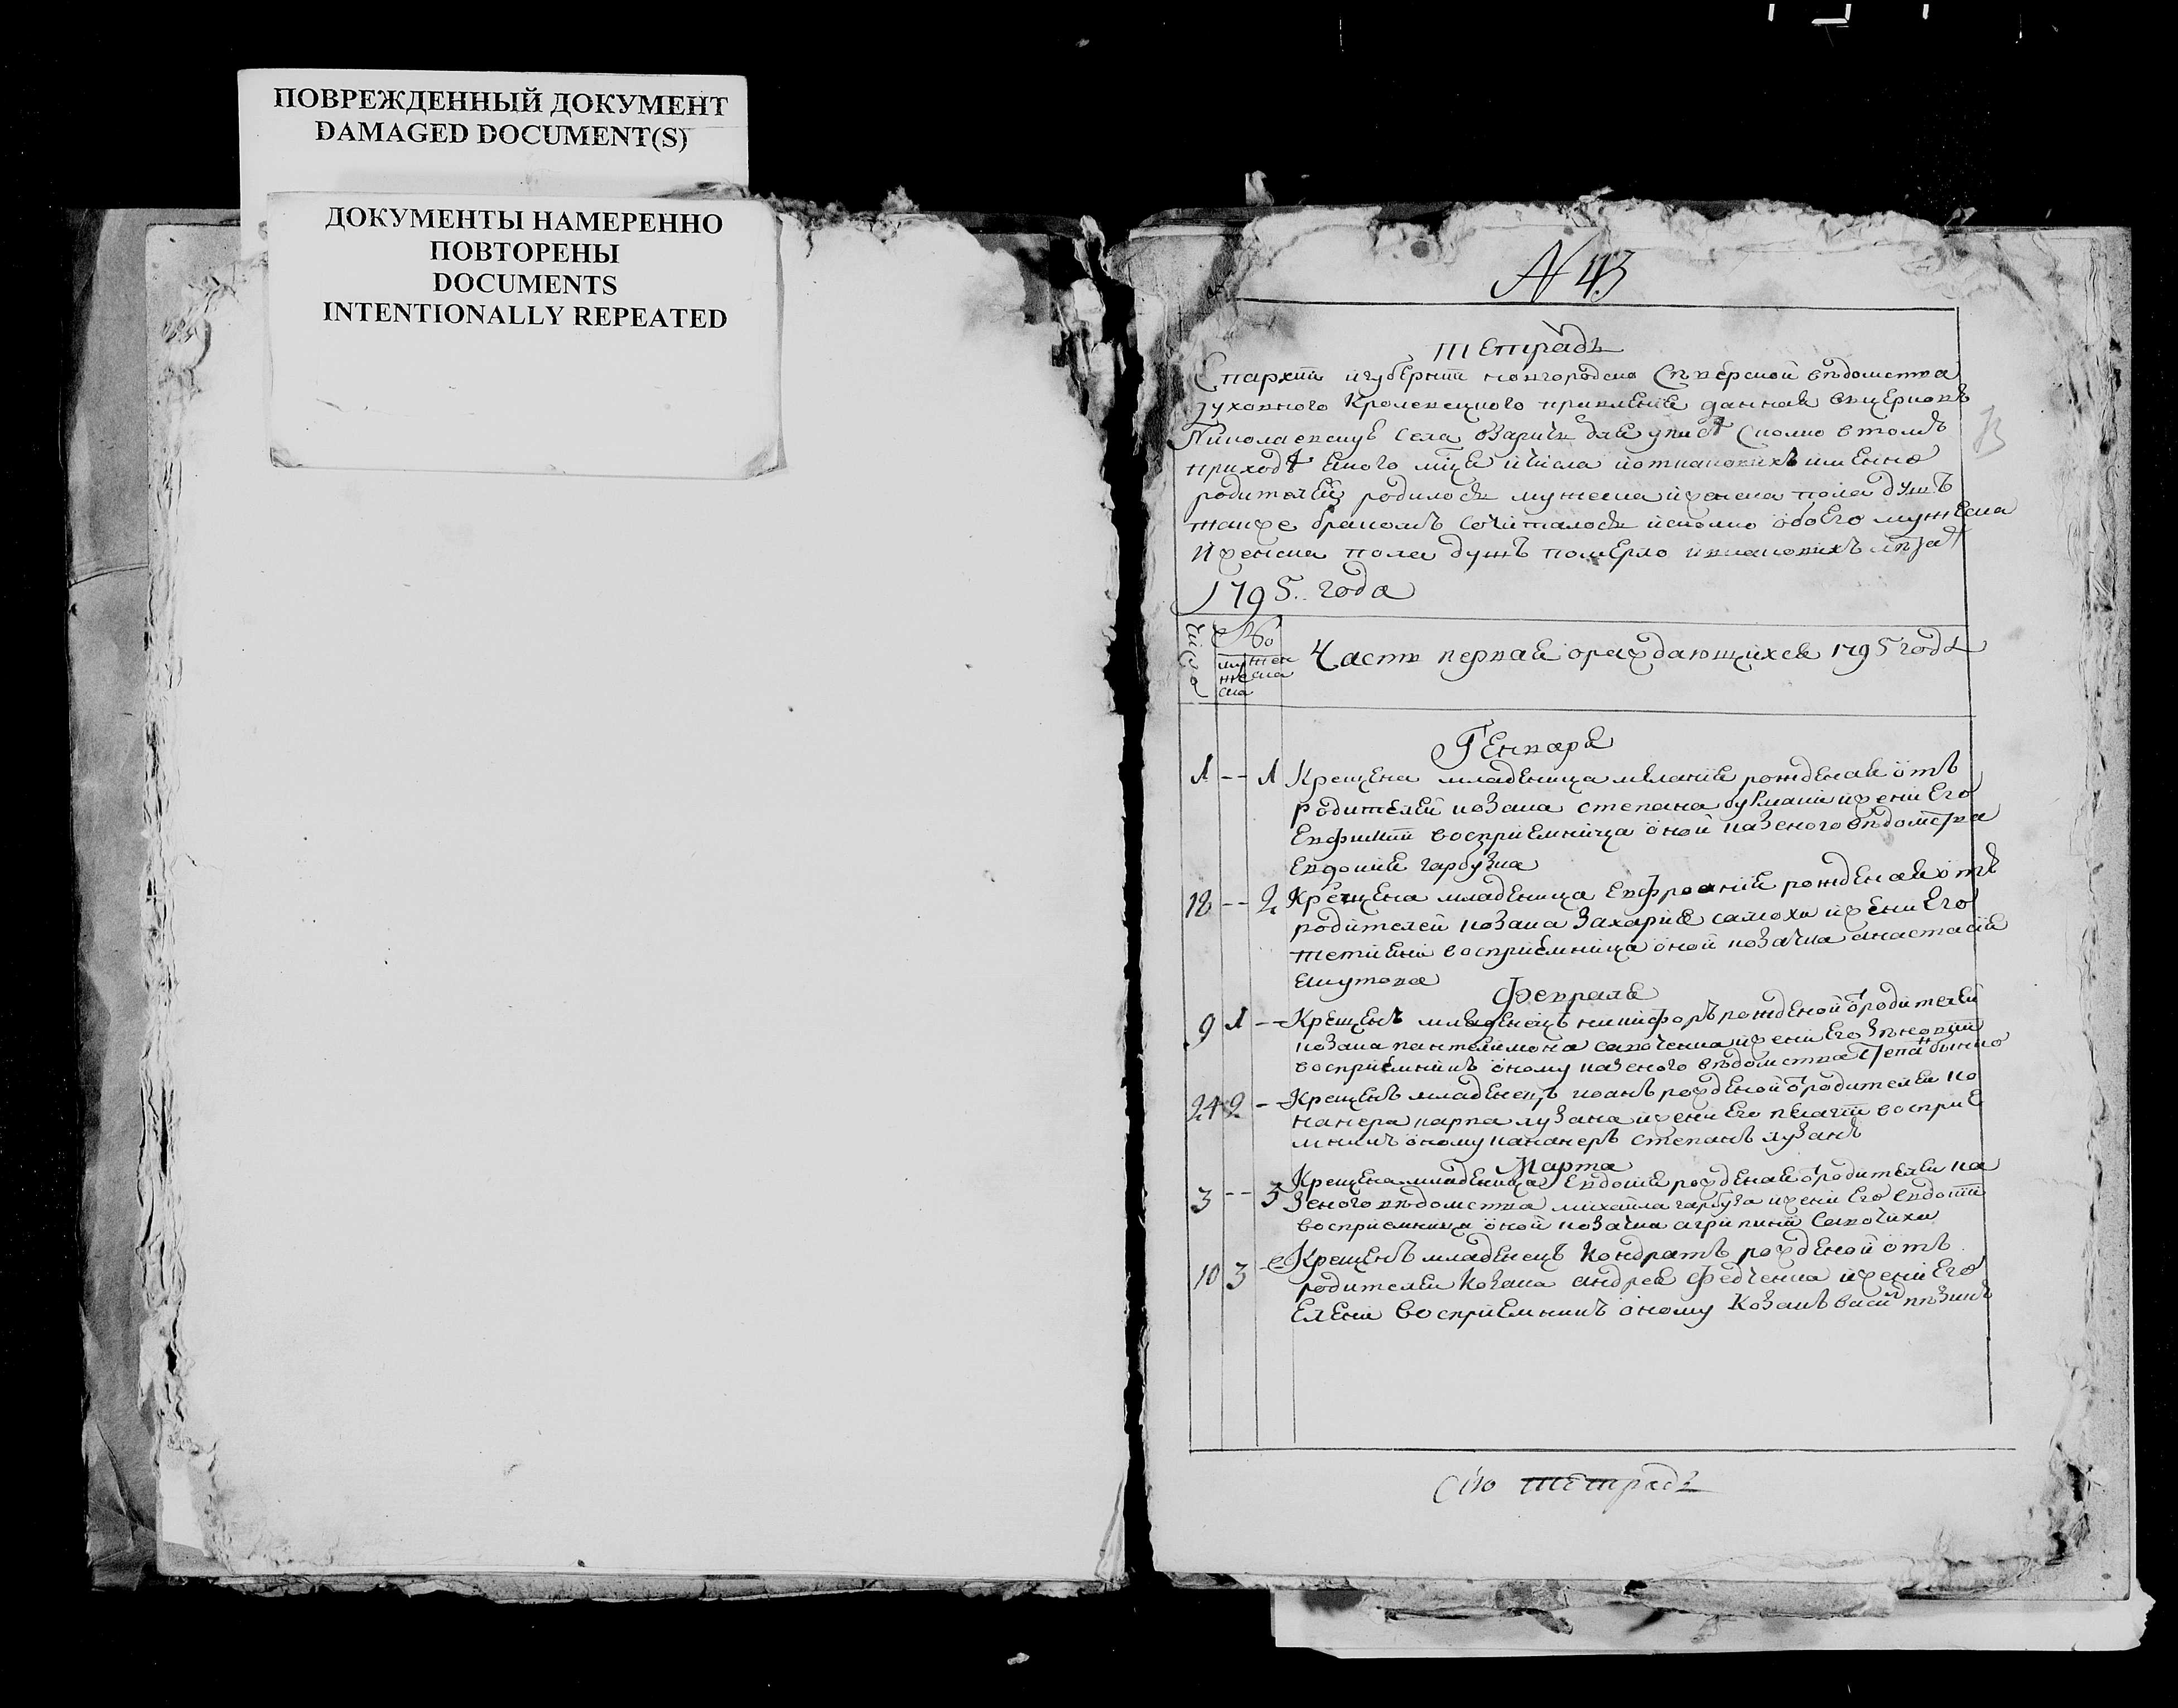 ПОВРЕЖДЕННЫЙ ДОКУМЕНТ
DAMAGED DOCUMENT(S)
ДОКУМЕНТЫ НАМЕРЕННО
ПОВТОРЕНЫ
DOCUMENTS
INTENTIONALLY REPEATED
N 43
тетрадь
Епархии и губернии новгородско Северской ведомства
духовного Кролевецкого правление данная вцерковъ
Николаевскую села озаричъ для Сколко втомъ
приходѣ якого мѣца ичисла иоткаковихъ имѣнно
родителей родилось мужеска ижѣнска пола душъ
также бракомъ сочиталось исколко обоего мужеска
ижѣнска пола душъ померло ивкаковихъ
1795. года
Число
муж
жен
ска
ска
Часть первая ораждающихся 1795 годъ
Генваря
1 -- 1 Крещена младеница меланiя рожденая отъ
родителей козака степана ижени Его
Евфимiи восприемница оной казеного вѣдомства
Евдокия гарбузка
18 -- 2 Крещена младеница Евфросинiя рожденая отъ
родителей козака Захария самохи ижени Его
татияни восприемница оной козачка анастасiя
Февраля
9 1 -- Крещенъ младенецъ никифоръ рожденой ѿ родителей
козака пантелимона савченка ижени Его Зѣновiи
восприемникъ оному казеного вѣдомства
24 2 -- Крещенъ младенецъ иоанъ рожденой ѿ родителей ка
нанера карпа лузана ижени Его пелагiи восприе
мникъ оному кананеръ степанъ лузанъ
Марта
3 -- 3 Крещена младеница Евдокия рожденая ѿ родителей ка
зеного вѣдомства михаила гарбуза ижени Его Евдокiи
восприемница оной козачка агрипина савочиха
10 3 -- Крещенъ младенецъ Кондратъ рожденой отъ
родителей Козака андрея Федченка ижени Его
Елени восприемникъ оному Козакъ
Сiю тетрадь